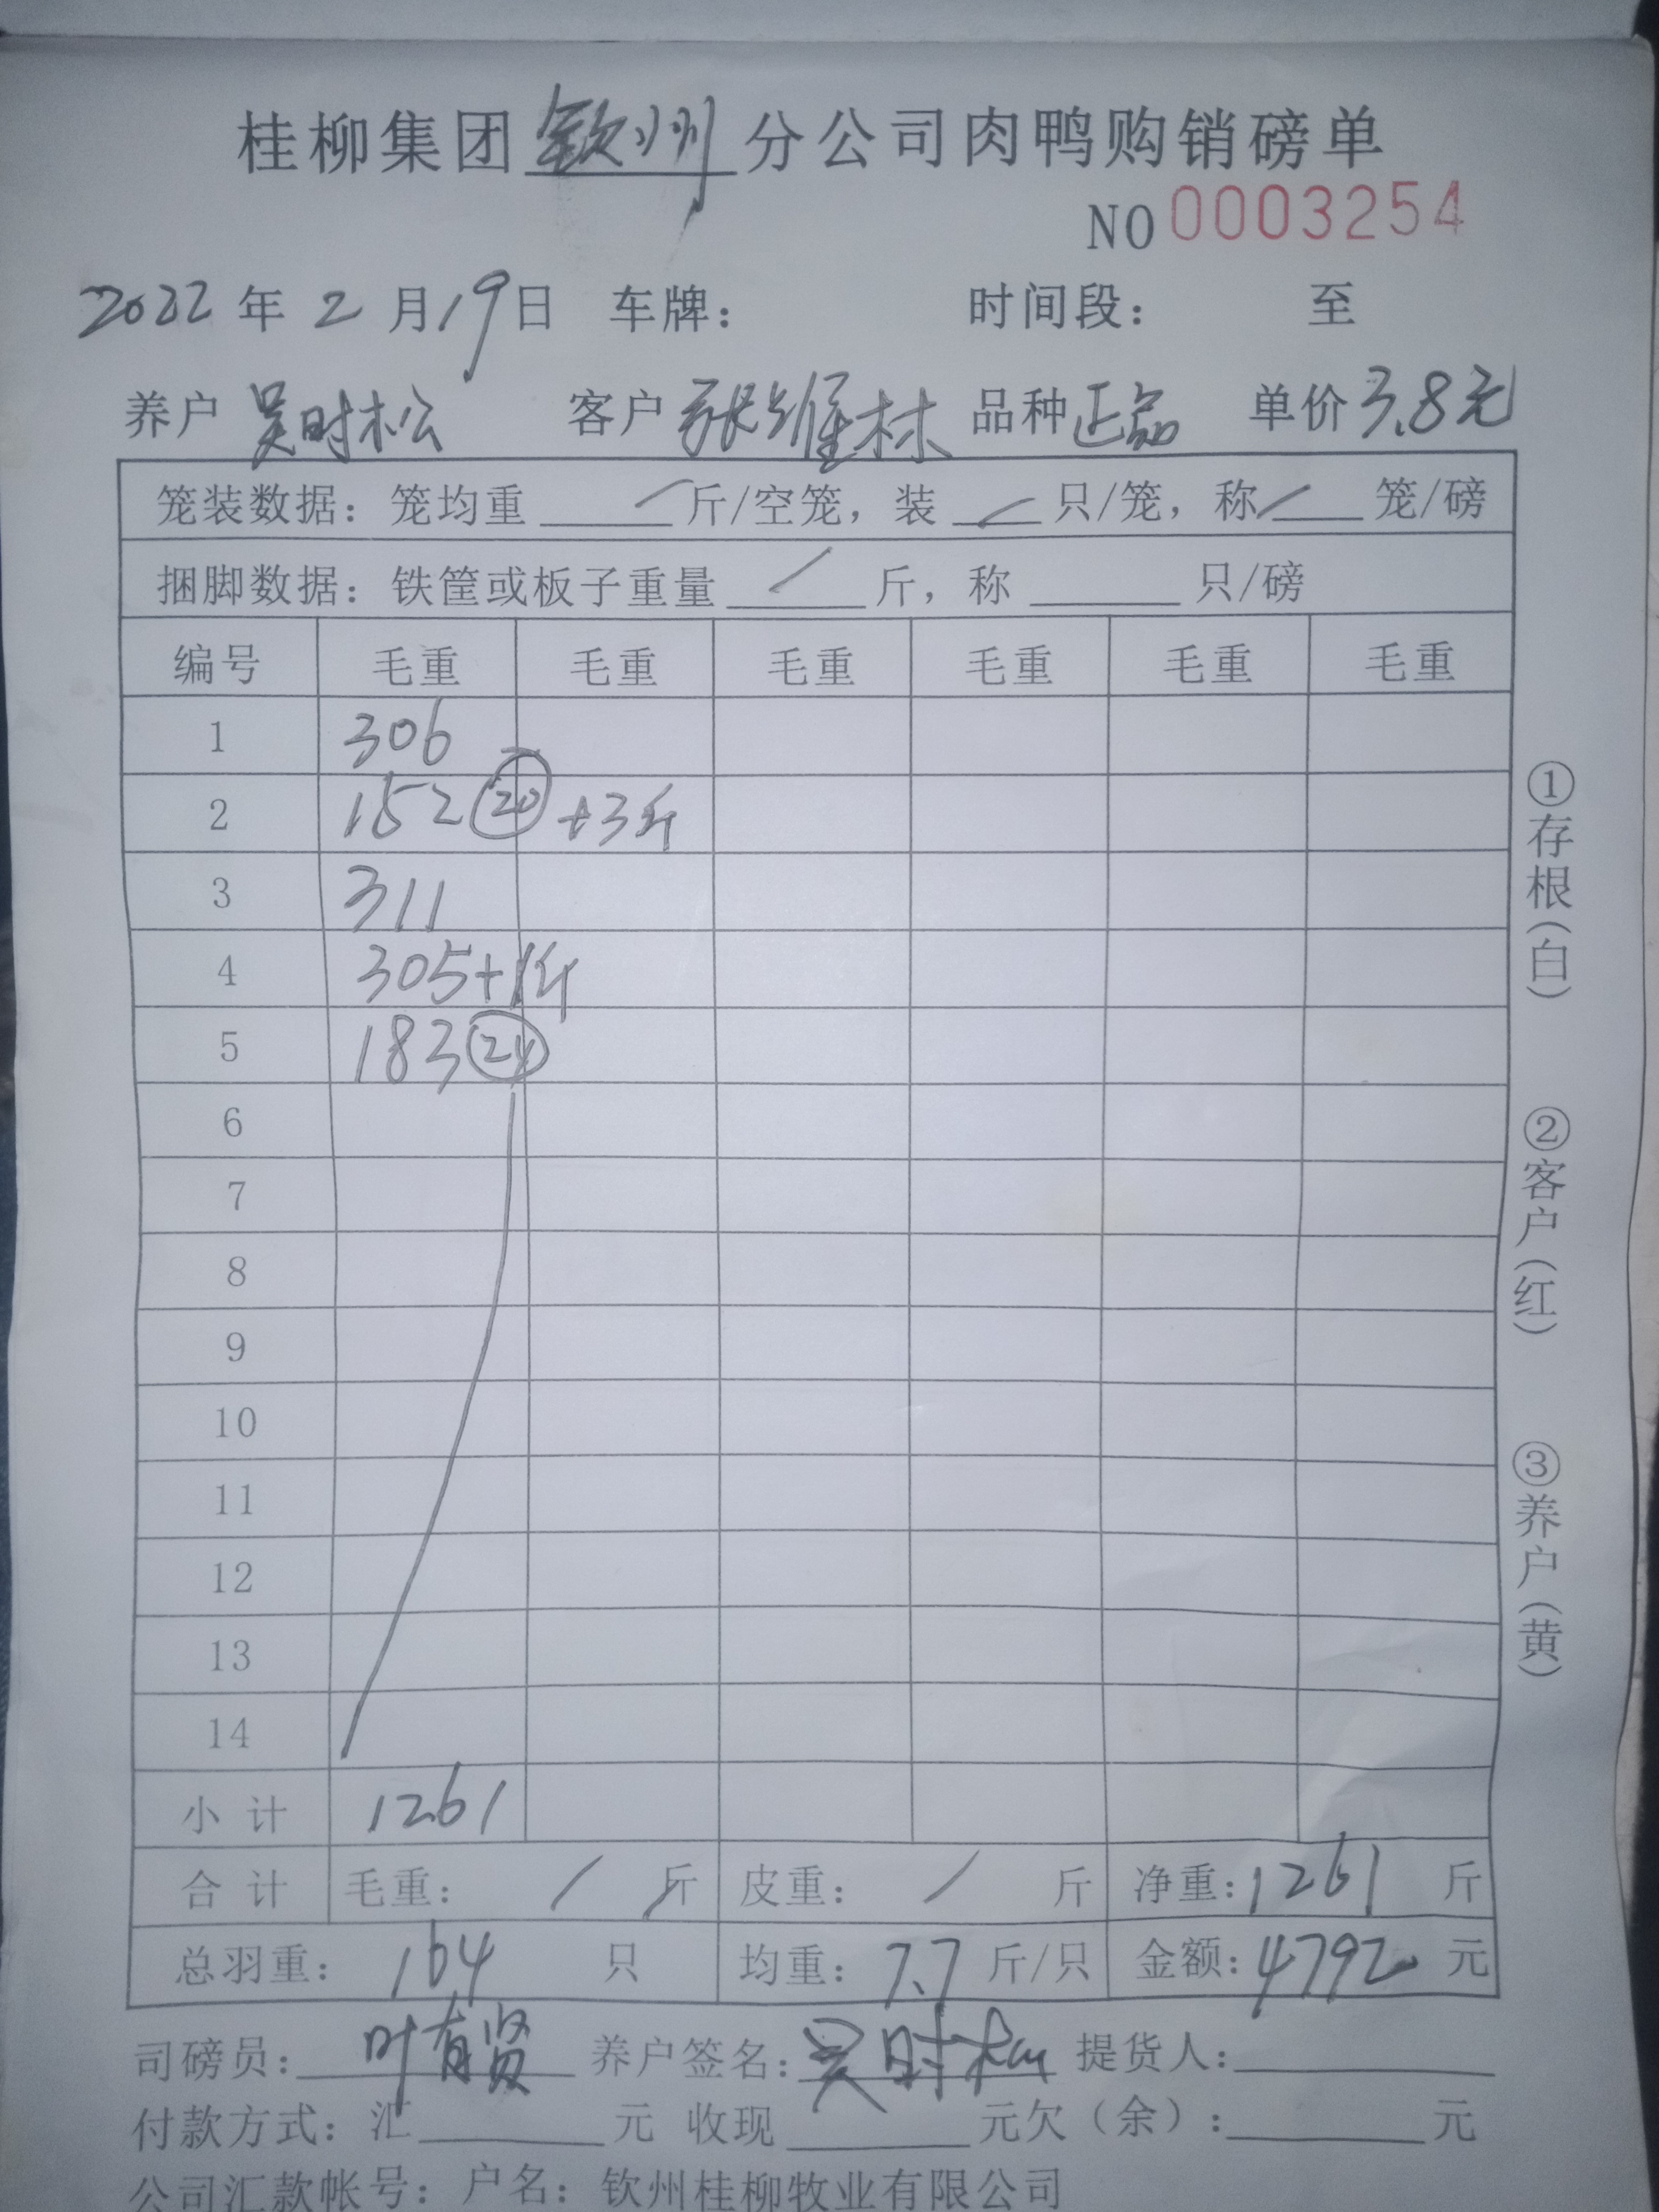 桂柳集团钦州分公司肉鸭购销磅单
NO 0003254
2022年2月19日 车牌： 时间段： 至
养户 吴时松 客户 张维林 品种 正品 单价 3.8元
笼装数据：笼均重 / 斤/空笼，装 / 只/笼，称 / 笼/磅
捆脚数据：铁筐或板子重量 / 斤，称 只/磅
编号 毛重 毛重 毛重 毛重 毛重 毛重
1 306
2 152 ⑳ +3斤
3 311
4 305+1斤
5 183 ㉔
6
7
8
9
10
11
12
13
14
小计 1261
合计 毛重： / 斤 皮重： / 斤 净重：1261 斤
总羽重：164 只 均重：7.7 斤/只 金额：4792 元
司磅员：叶有贤 养户签名：吴时松 提货人：
付款方式：汇 元 收现 元欠（余）： 元
公司汇款帐号：户名：钦州桂柳牧业有限公司
①存根（白）
②客户（红）
③养户（黄）